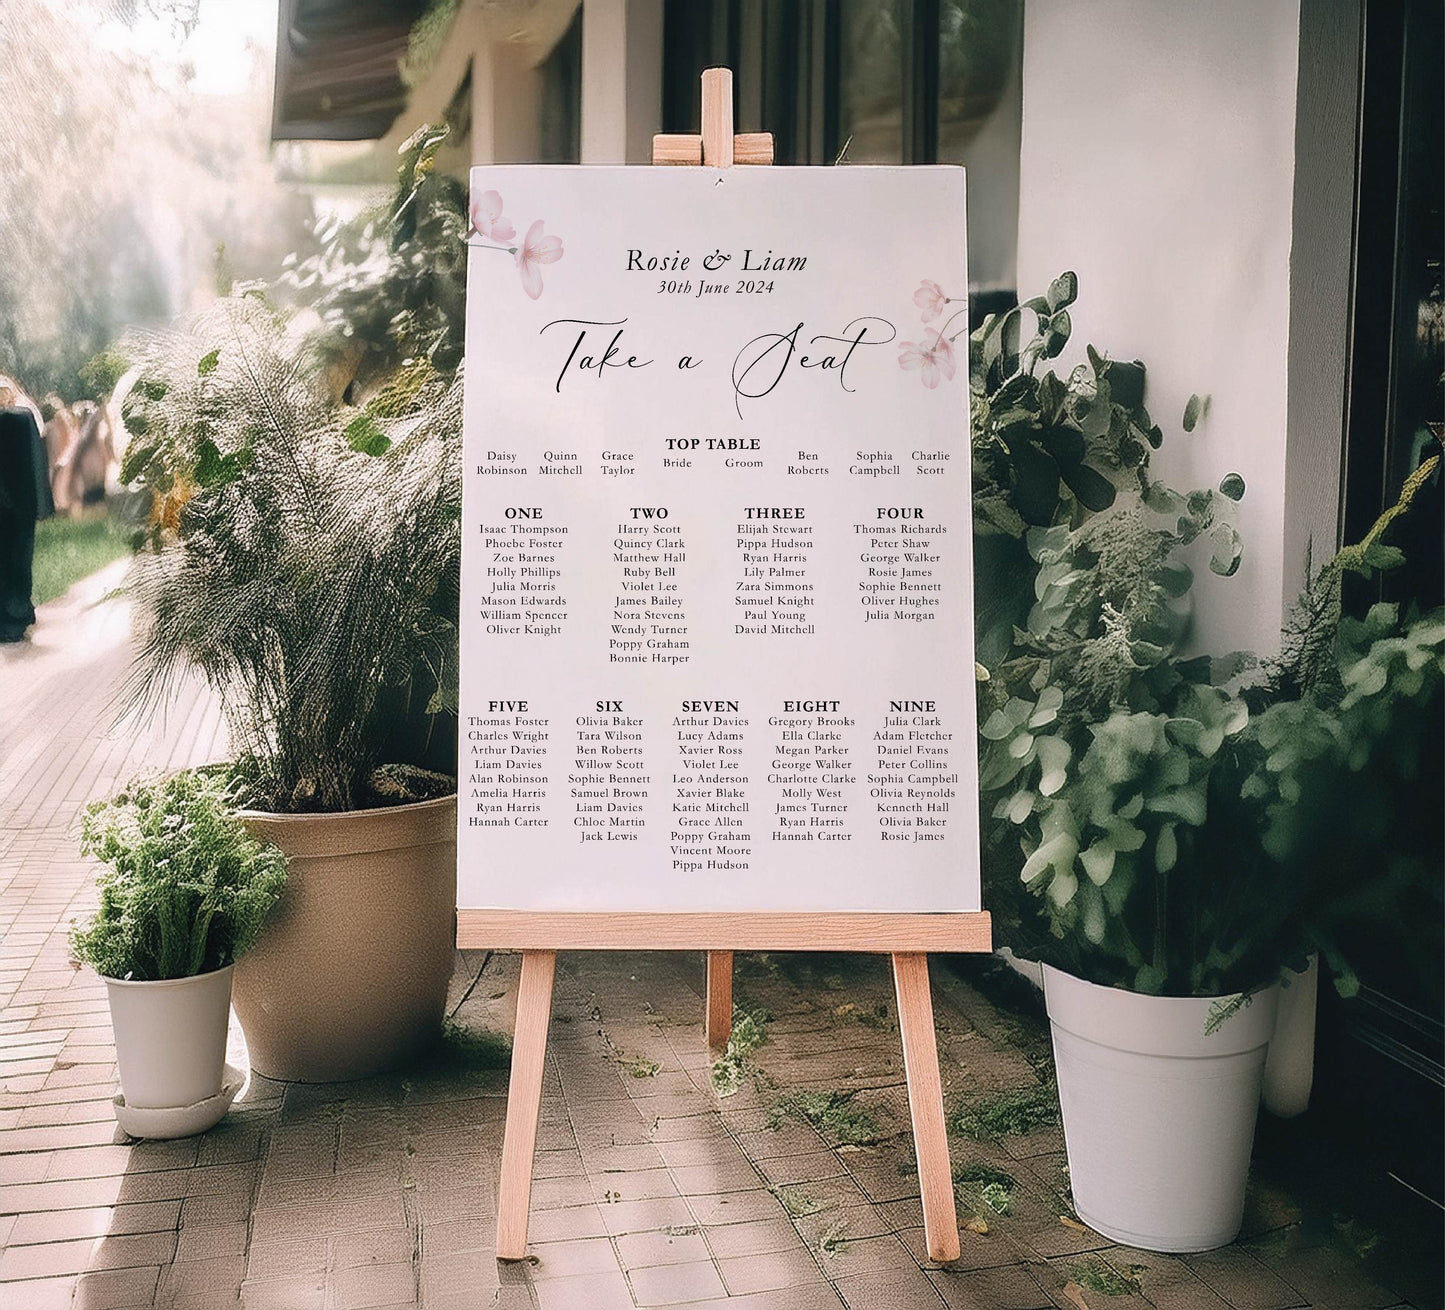 Rosie & Liam
30th June 2024
Take a Seat
TOP TABLE
Daisy Robinson
Quinn Mitchell
Grace Taylor
Bride
Groom
Ben Roberts
Sophia Campbell
Charlie Scott
ONE
Isaac Thompson
Phoebe Foster
Zoe Barnes
Holly Phillips
Julia Morris
Mason Edwards
William Spencer
Oliver Knight
TWO
Harry Scott
Quincy Clark
Matthew Hall
Ruby Bell
Violet Lee
James Bailey
Nora Stevens
Wendy Turner
Poppy Graham
Bonnie Harper
THREE
Elijah Stewart
Pippa Hudson
Ryan Harris
Lily Palmer
Zara Simmons
Samuel Knight
Paul Young
David Mitchell
FOUR
Thomas Richards
Peter Shaw
George Walker
Rosie James
Sophie Bennett
Oliver Hughes
Julia Morgan
FIVE
Thomas Foster
Charles Wright
Arthur Davies
Liam Davies
Alan Robinson
Amelia Harris
Ryan Harris
Hannah Carter
SIX
Olivia Baker
Tara Wilson
Ben Roberts
Willow Scott
Sophie Bennett
Samuel Brown
Liam Davies
Chloe Martin
Jack Lewis
SEVEN
Arthur Davies
Lucy Adams
Xavier Ross
Violet Lee
Leo Anderson
Xavier Blake
Katie Mitchell
Grace Allen
Poppy Graham
Vincent Moore
Pippa Hudson
EIGHT
Gregory Brooks
Ella Clarke
Megan Parker
George Walker
Charlotte Clarke
Molly West
James Turner
Ryan Harris
Hannah Carter
NINE
Julia Clark
Adam Fletcher
Daniel Evans
Peter Collins
Sophia Campbell
Olivia Reynolds
Kenneth Hall
Olivia Baker
Rosie James